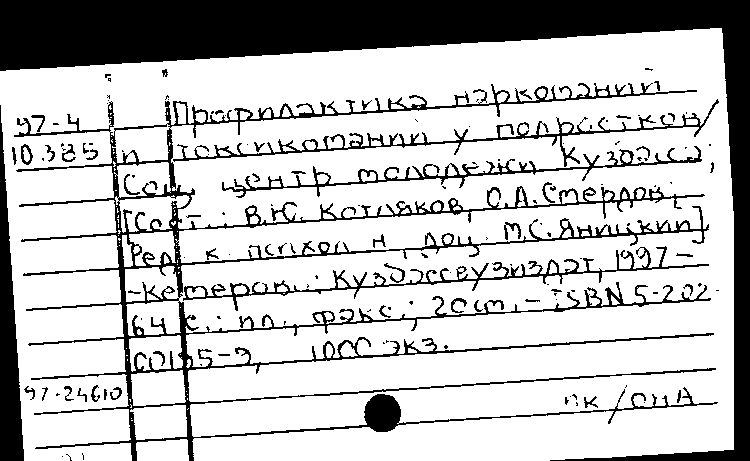 Профилактика наркоманий
97-4
10.385 и токсикоманий у подростков/
Соц. центр молодежи Кузбасса;
[Сост.: В.Ю. Котляков, О.А. Стердов;
Ред. к. психол. н., доц. М.С. Яницкий].
-Кемерово.: Кузбассвузиздат, 1997-
64 с.: ил., факс.; 20см.- ISBN 5-202-
00195-9, 1000 экз.
97-24610
пк/